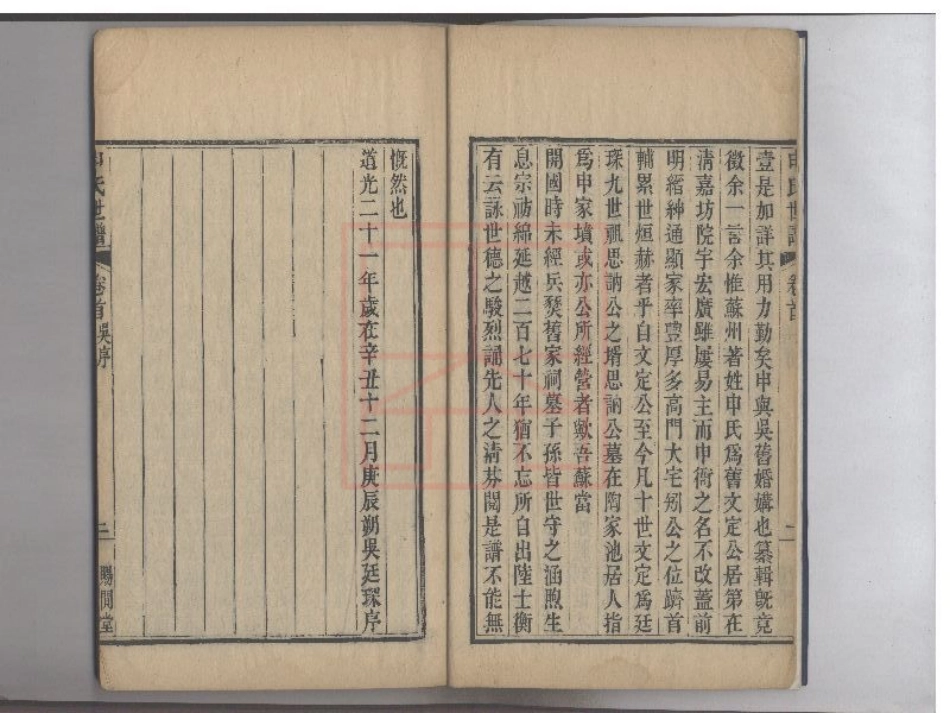 申氏世譜 卷首 二
壹是加詳其用力勤矣申與吳舊婚媾也纂輯旣竟
徵余一言余惟蘇州著姓申氏爲舊文定公居第在
淸嘉坊院宇宏廣雖屢易主而申衙之名不改蓋前
明縉紳通顯家率豐厚多高門大宅矧公之位躋首
輔累世烜赫者乎自文定公至今凡十世文定爲廷
琛九世祖思訥公之壻思訥公墓在陶家池居人指
爲申家墳或亦公所經營者歟吾蘇當
開國時未經兵燹舊家祠墓子孫皆世守之涵煦生
息宗祊綿延越二百七十年猶不忘所自出陸士衡
有云詠世德之駿烈誦先人之淸芬閱是譜不能無
慨然也
道光二十一年歲在辛丑十二月庚辰朔吳廷琛序
申氏世譜 卷首 吳序 二 賜閒堂